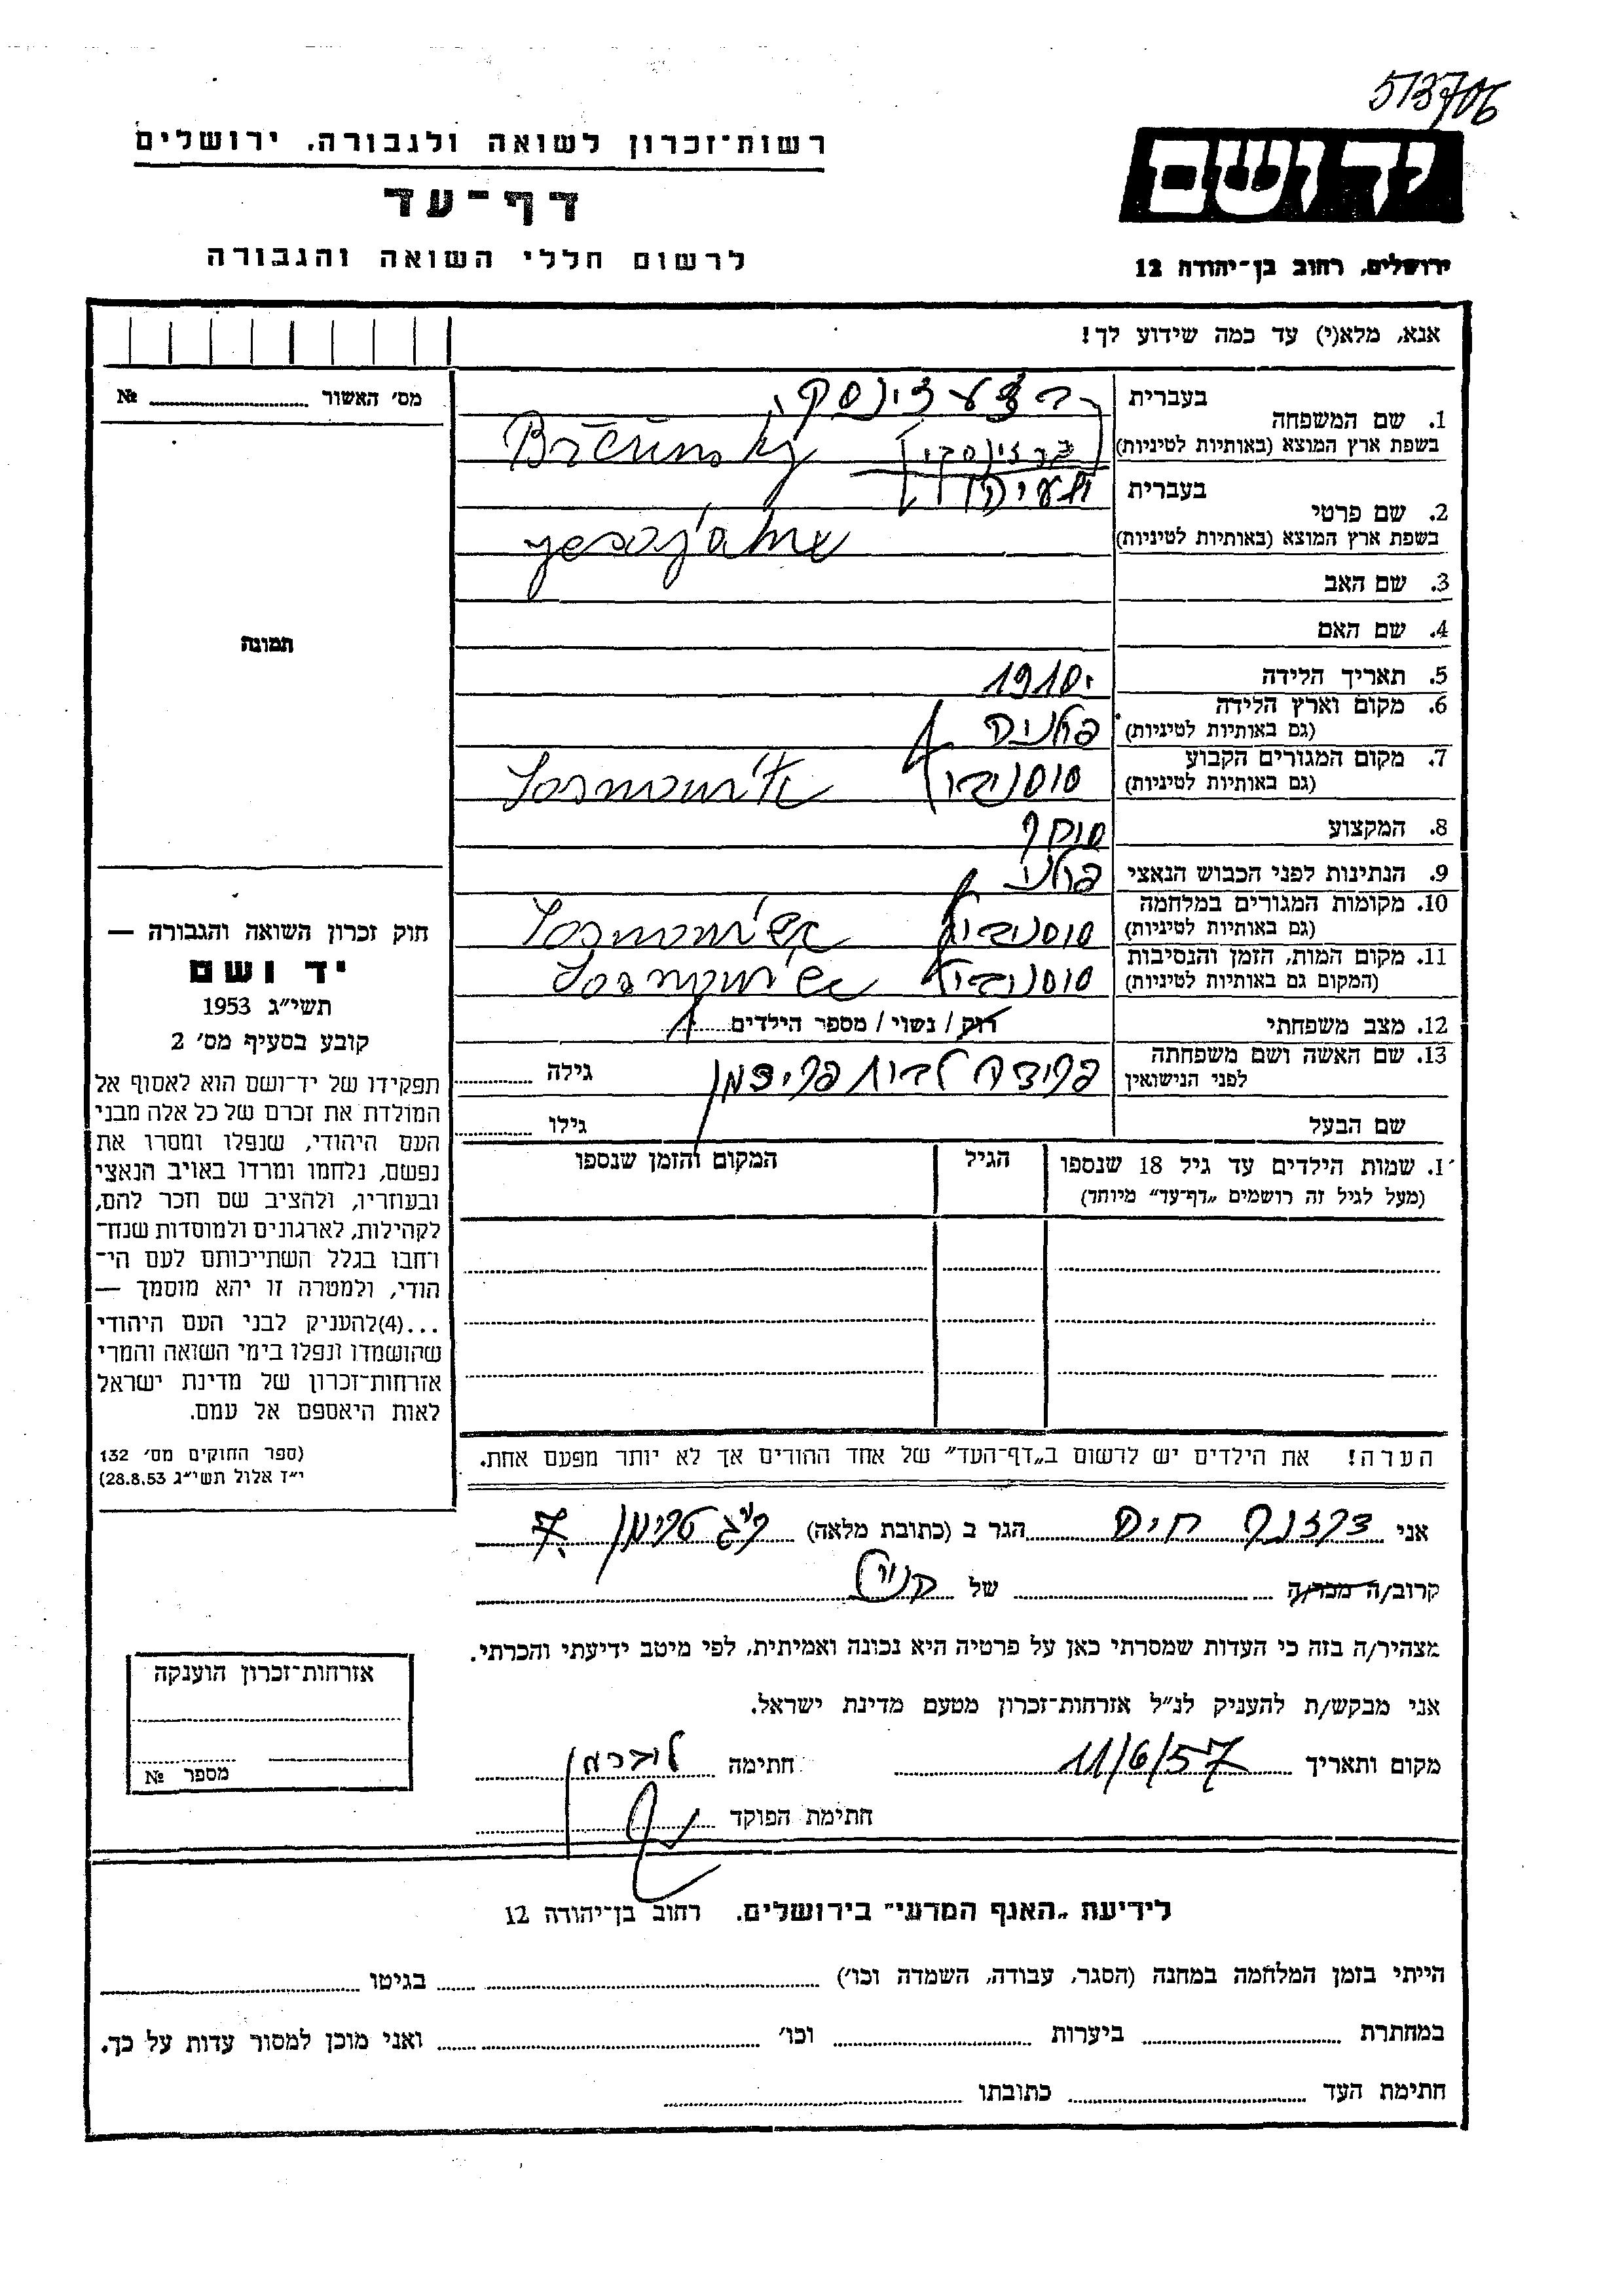 513706
רשות־זכרון לשואה ולגבורה. ירושלים
יד ושם
דף־עד
לרשום חללי השואה והגבורה
ירושלים, רחוב בן־יהודה 12
אנא, מלא(י) עד כמה שידוע לך!
מס׳ האשור № 
1. שם המשפחה בעברית
בשפת ארץ המוצא (באותיות לטיניות) ברזינסקי
2. שם פרטי בעברית
בשפת ארץ המוצא (באותיות לטיניות)
3. שם האב
4. שם האם
תמונה
5. תאריך הלידה 1910
6. מקום וארץ הלידה
(גם באותיות לטיניות)
7. מקום המגורים הקבוע
(גם באותיות לטיניות) סוסנוביץ
8. המקצוע סוחר
9. הנתינות לפני הכבוש הנאצי
10. מקומות המגורים במלחמה
(גם באותיות לטיניות) סוסנוביץ
11. מקום המות, הזמן והנסיבות
(המקום גם באותיות לטיניות) סוסנוביץ
12. מצב משפחתי רוק / נשוי / מספר הילדים 1
13. שם האשה ושם משפחתה
לפני הנישואין לבית גילה
שם הבעל גילו
חוק זכרון השואה והגבורה —
יד ושם
תשי״ג 1953
קובע בסעיף מס׳ 2
תפקידו של יד־ושם הוא לאסוף אל
המולדת את זכרם של כל אלה מבני
העם היהודי, שנפלו ומסרו את
נפשם, נלחמו ומרדו באויב הנאצי
ובעוזריו, ולהציב שם וזכר להם,
לקהילות, לארגונים ולמוסדות שנח־
רחבו בגלל השתייכותם לעם הי־
הודי, ולמטרה זו יהא מוסמך —
...(4)להעניק לבני העם היהודי
שהושמדו ונפלו בימי השואה והמרי
אזרחות־זכרון של מדינת ישראל
לאות היאספם אל עמם.
(ספר החוקים מס׳ 132
י״ז אלול תשי״ג 28.8.53)
I. שמות הילדים עד גיל 18 שנספו הגיל המקום והזמן שנספו
(מעל לגיל זה רושמים „דף־עד״ מיוחד)
הערה! את הילדים יש לרשום ב„דף־העד״ של אחד ההורים אך לא יותר מפעם אחת.
אני חיים הגר ב (כתובת מלאה) 7
קרוב/ה מכר/ה של
מצהיר/ה בזה כי העדות שמסרתי כאן על פרטיה היא נכונה ואמיתית, לפי מיטב ידיעתי והכרתי.
אני מבקש/ת להעניק לנ״ל אזרחות־זכרון מטעם מדינת ישראל.
מקום ותאריך 11/6/57 חתימה
חתימת הפוקד
אזרחות־זכרון הוענקה
מספר №
לידיעת „האגף המדעי״ בירושלים. רחוב בן־יהודה 12
הייתי בזמן המלחמה במחנה (הסגר, עבודה, השמדה וכו׳) בגיטו
במחתרת ביערות וכו׳ ואני מוכן למסור עדות על כך.
חתימת העד כתובתו